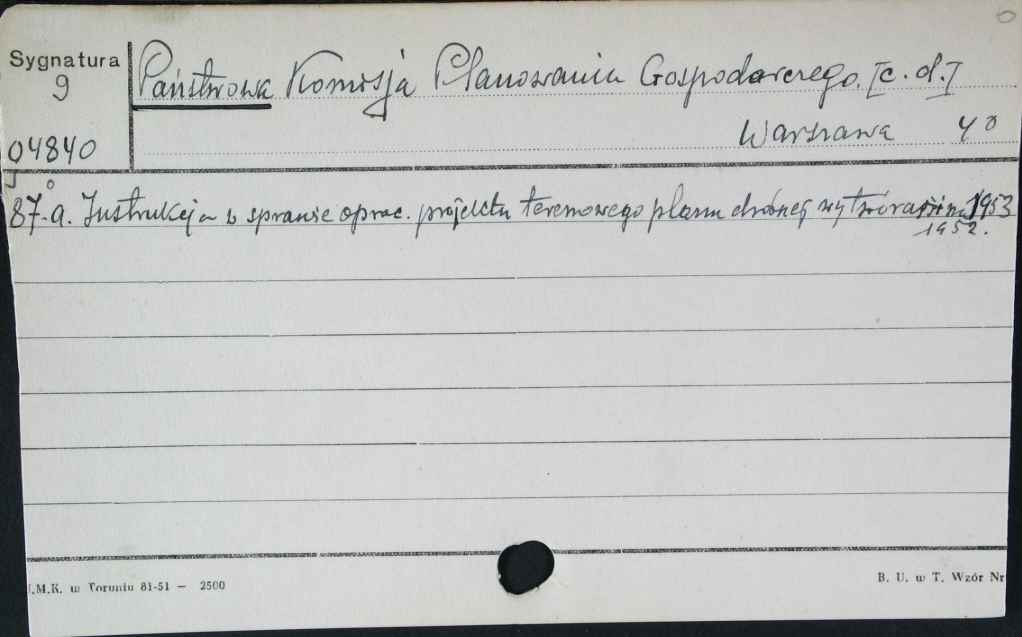 Sygnatura
9
Państwowa Komisja Planowania Gospodarczego. [c. d.]
Warszawa 4°
04840
87. a. Instrukcja w sprawie oprac. projektu terenowego planu drobnej wytwórcz. na 1953
1952.
U.M.K. w Toruniu 81-51 — 2500
B. U. w T. Wzór Nr